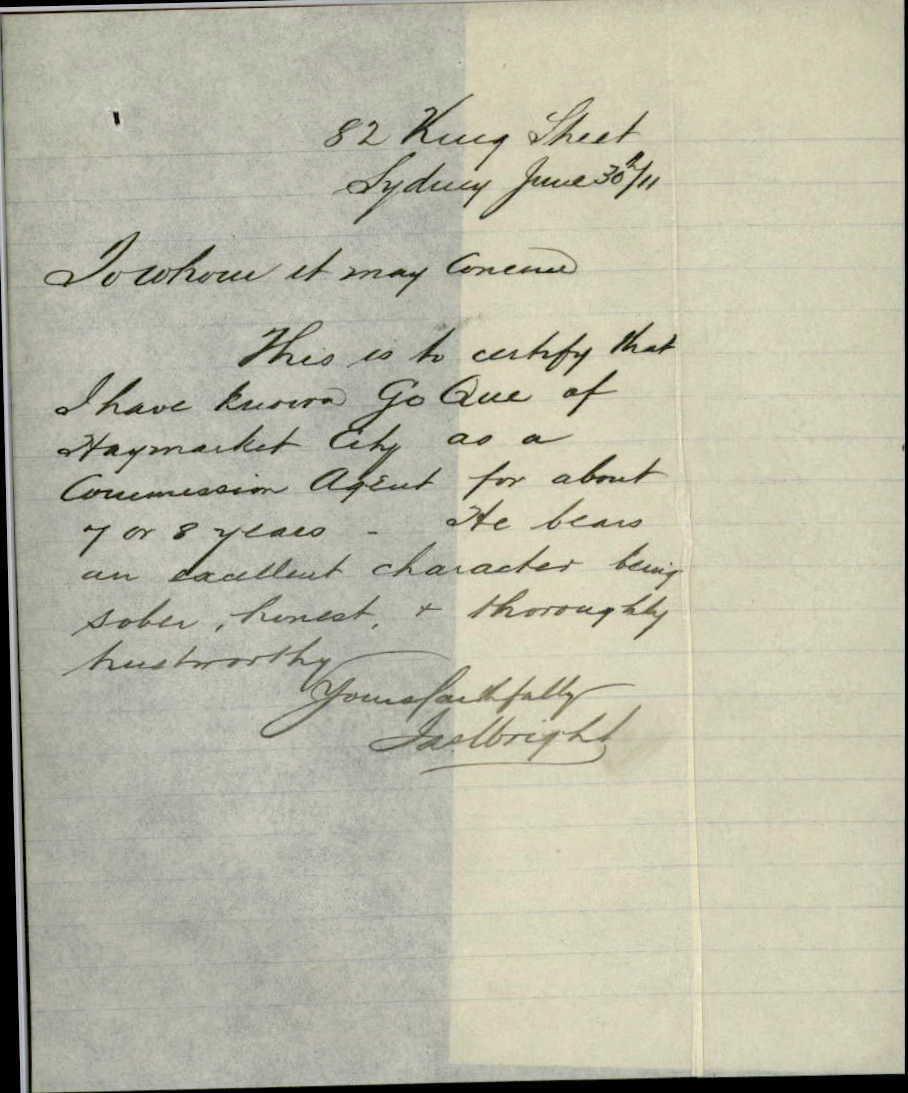 82 King Street
Sydney June 30th/11
To whom it may Concern
This is to certify that
I have known Go Que of
Haymarket City as a
Commission Agent for about
7 or 8 years - He bears
an excellent character being
sober, honest, & thoroughly
trustworthy
Yours faithfully
Jas Wright